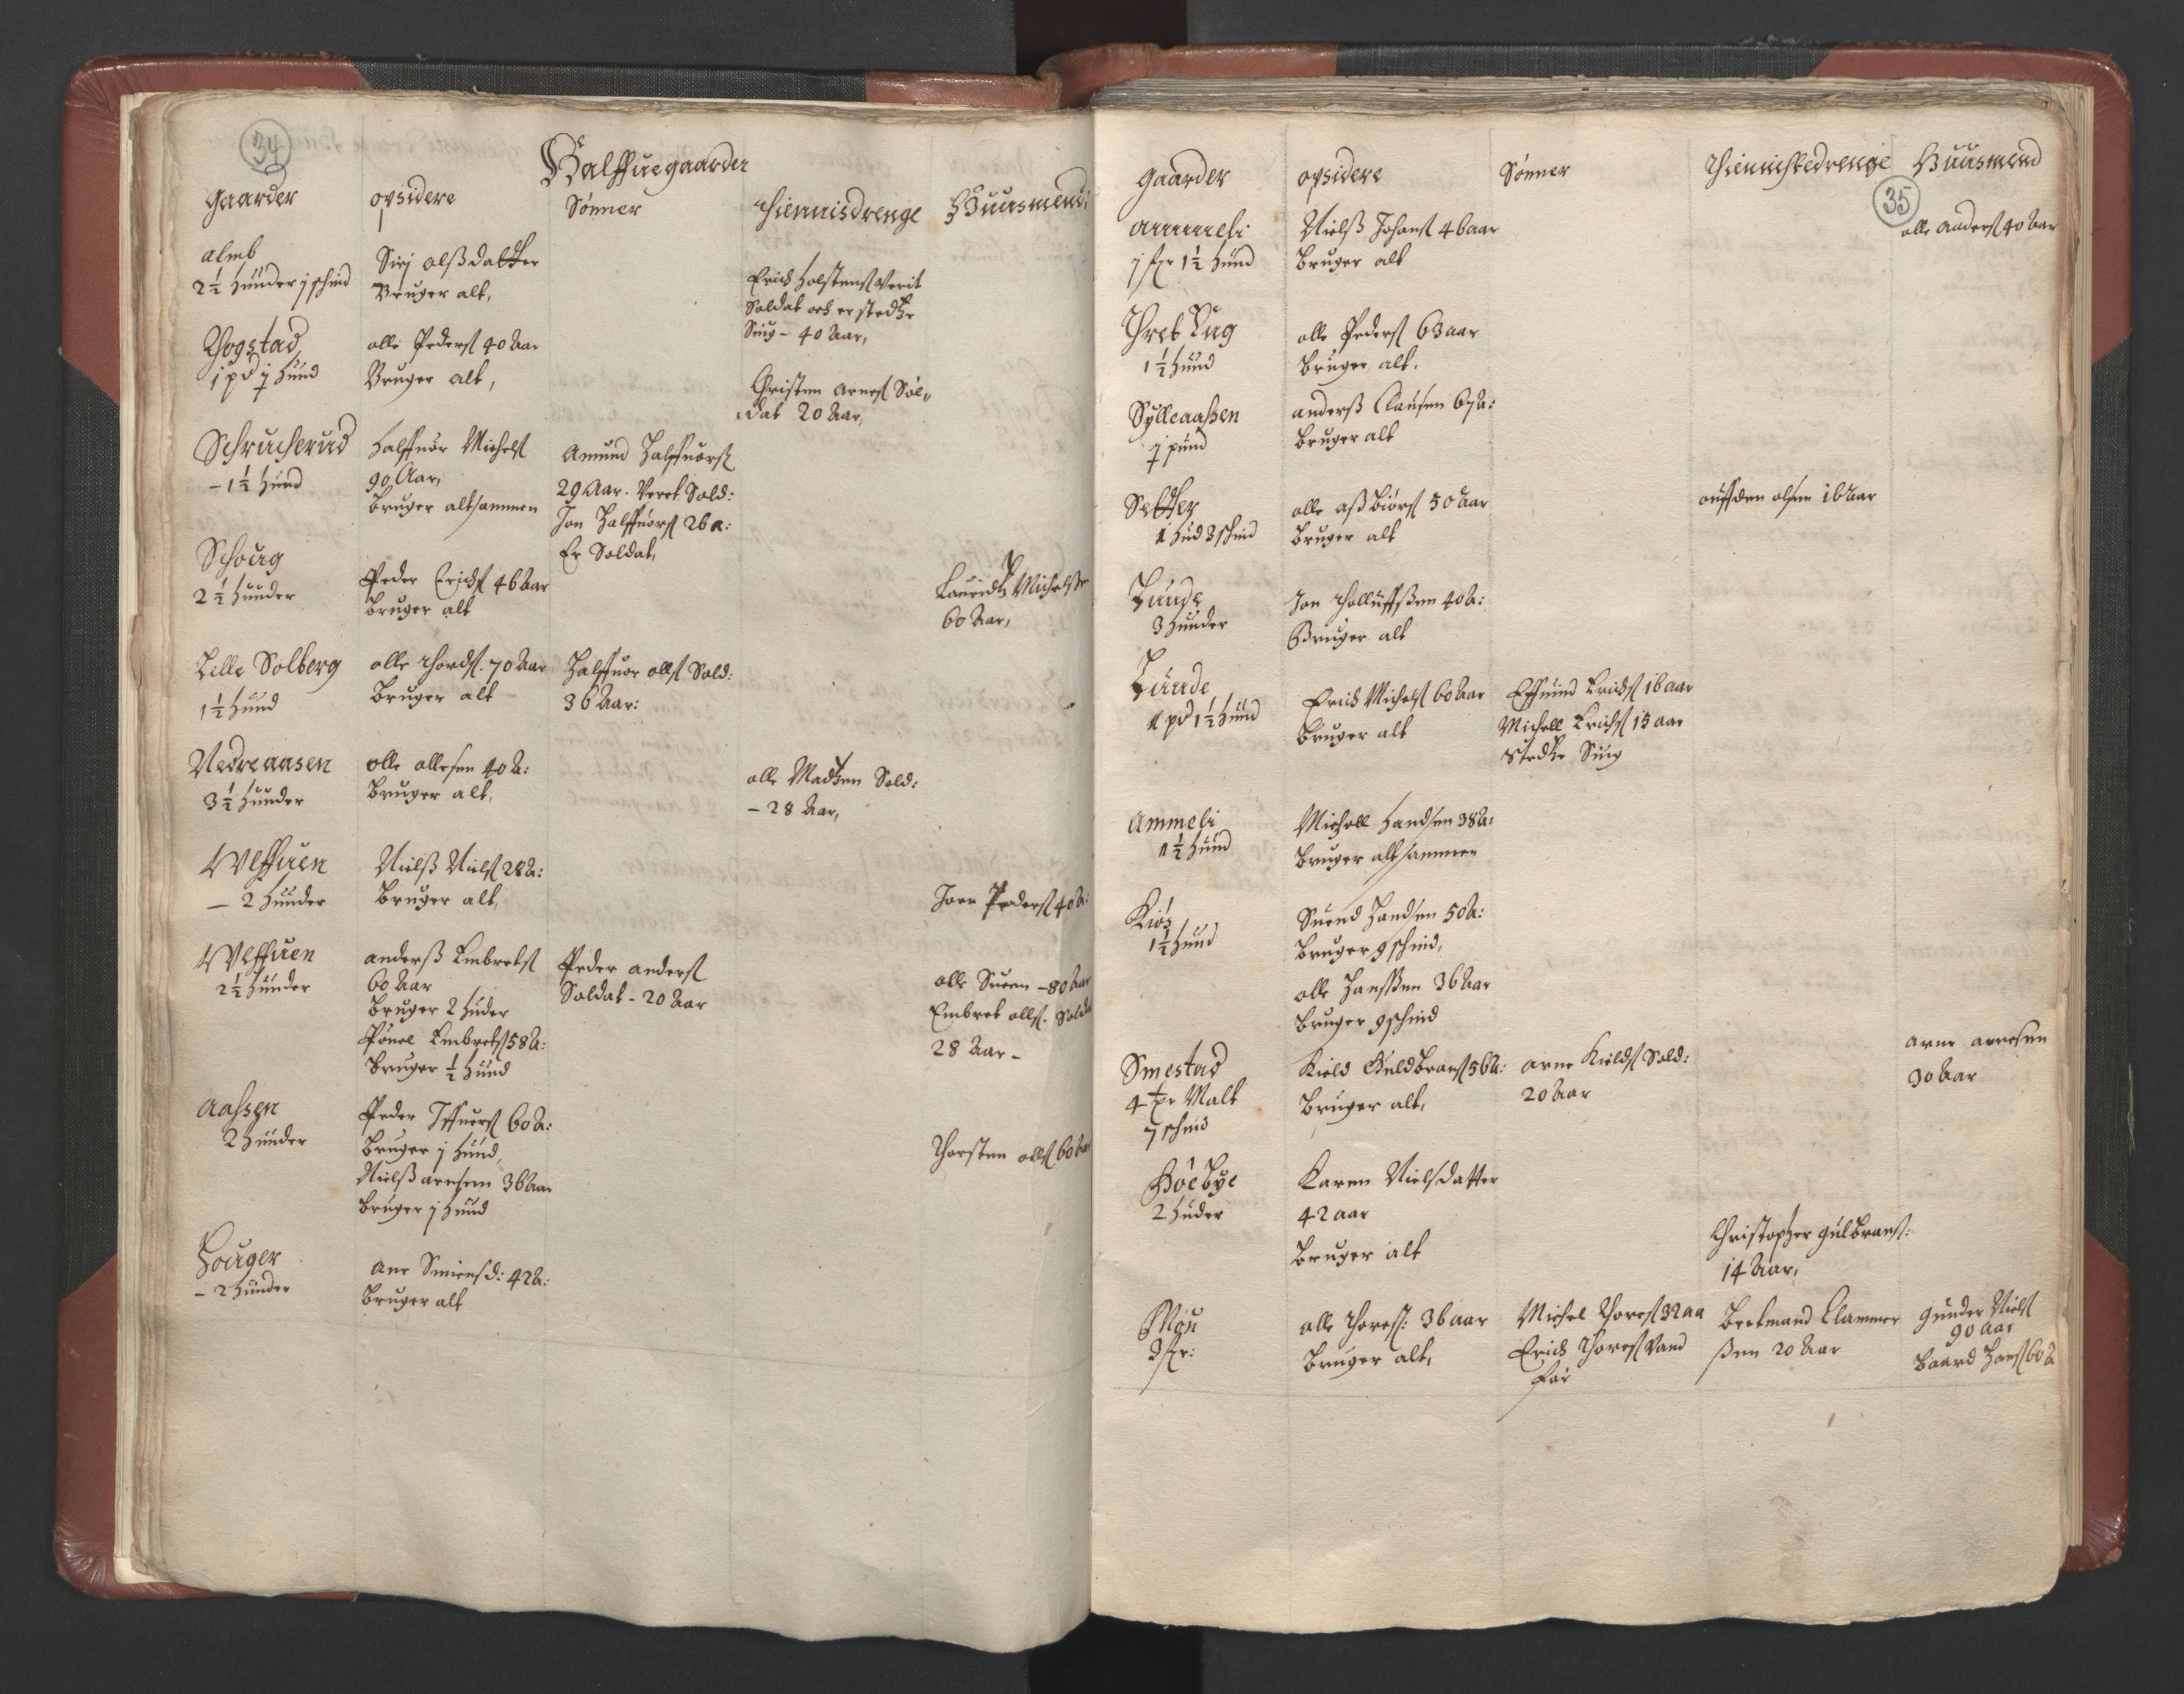 34
Halffuegaarder
Gaarder
opsidere
Sønner
thiennisdrenge
Huusmend
almb
2½ Hunder j schind
Sirj olßdatter
Bruger alt,
Erich Holstens Verit
Soldat och er stedtze
Siug - 40 Aar,
Bogstad
1 pd j Hund
olle Peders 40 Aar
Bruger alt,
Christen Arnes Sol,
dat 20 Aar,
Schrucherud
- 1½ Hund
Halffuor Michels
90 Aar,
Bruger altsammen
Amund Halffuors
29 Aar. Veret Sold:
Jon Halffuors 26 a:
Er Soldat,
Schoug
2½ Hunder
Peder Erichs 46 Aar
Bruger alt
Lauridtz Michelsen
60 Aar,
Lille Solberg
1½ Hund
olle thords. 70 Aar
Bruger alt
Halffuor olls Sold:
36 Aar:
Nedreaasen
3½ Hunder
olle ollesen 40 A:
Bruger alt,
olle Madtzen Sold:
- 28 Aar,
Wlffuen
- 2 Hunder
Nielß Niels 28 A:
Bruger alt,
Joen Peders 40 A:
Wlffuen
2½ Hunder
anderß Embrets
60 Aar
Bruger 2 Huder
Pouel Embrets 58 A:
Bruger ½ Hund
Peder anders
Soldat - 20 Aar
olle Suen - 80 Aar
Embret olls. Soldat
28 Aar -
Aassen
2 Hunder
Peder Iffuers 60 A:
Bruger j Hund,
Nielß arnesen 36 Aar
Bruger j Hund
Thorsten olls 60 Aar
Houger
- 2 Hunder
ane Simensd: 42 A:
Bruger alt
Gaarder
opsidere
Sønner
thiennistedrenge
Huusmend
35
Nielß Johans 46 aar
Bruger alt
olle anders 40 Aar
1½ Hund
olle Peders 63 aar
Bruger alt.
Sylleaassen
j pund
anderß Clausen 67 A:
Bruger alt
Setter
1 Hud 3 schind
olle aßbiørs 50 aar
Bruger alt
ouffden olsen 16 Aar
Lunde
3 Hunder
Jon tholluffßen 40 A:
Bruger alt
Lunde
1 pd 1½ Hund
Erich Michels 60 Aar
Bruger alt
Effuind Erichs 16 aar
Michell Erichs 15 aar
stedtze Siug
Ammeli
1½ Hund
Michell Handsen 38 A:
Bruger altsammen
Kiøs
1½ Hund
Suend Handsen 50 A:
Bruger 9 schind,
olle Hansßen 36 Aar
Bruger 9 schind
Smestad
4 tpr Malt
7 schind
Kield Guldbrans 56 A:
Bruger alt,
arne Kields Sold:
20 Aar
arne arnesen
30 Aar
Høebye
2 Huder
Karen Nielsdatter
42 aar
Bruger alt
Christopher Gulbrans:
14 Aar,
Mou
olle thores: 36 aar
Bruger alt,
Michel Thores 32 aa
Erich Thores Vand
før
Bertmand Clammer
ßen 20 Aar
Gunder Niels
90 Aar
Baard Hans 60 A